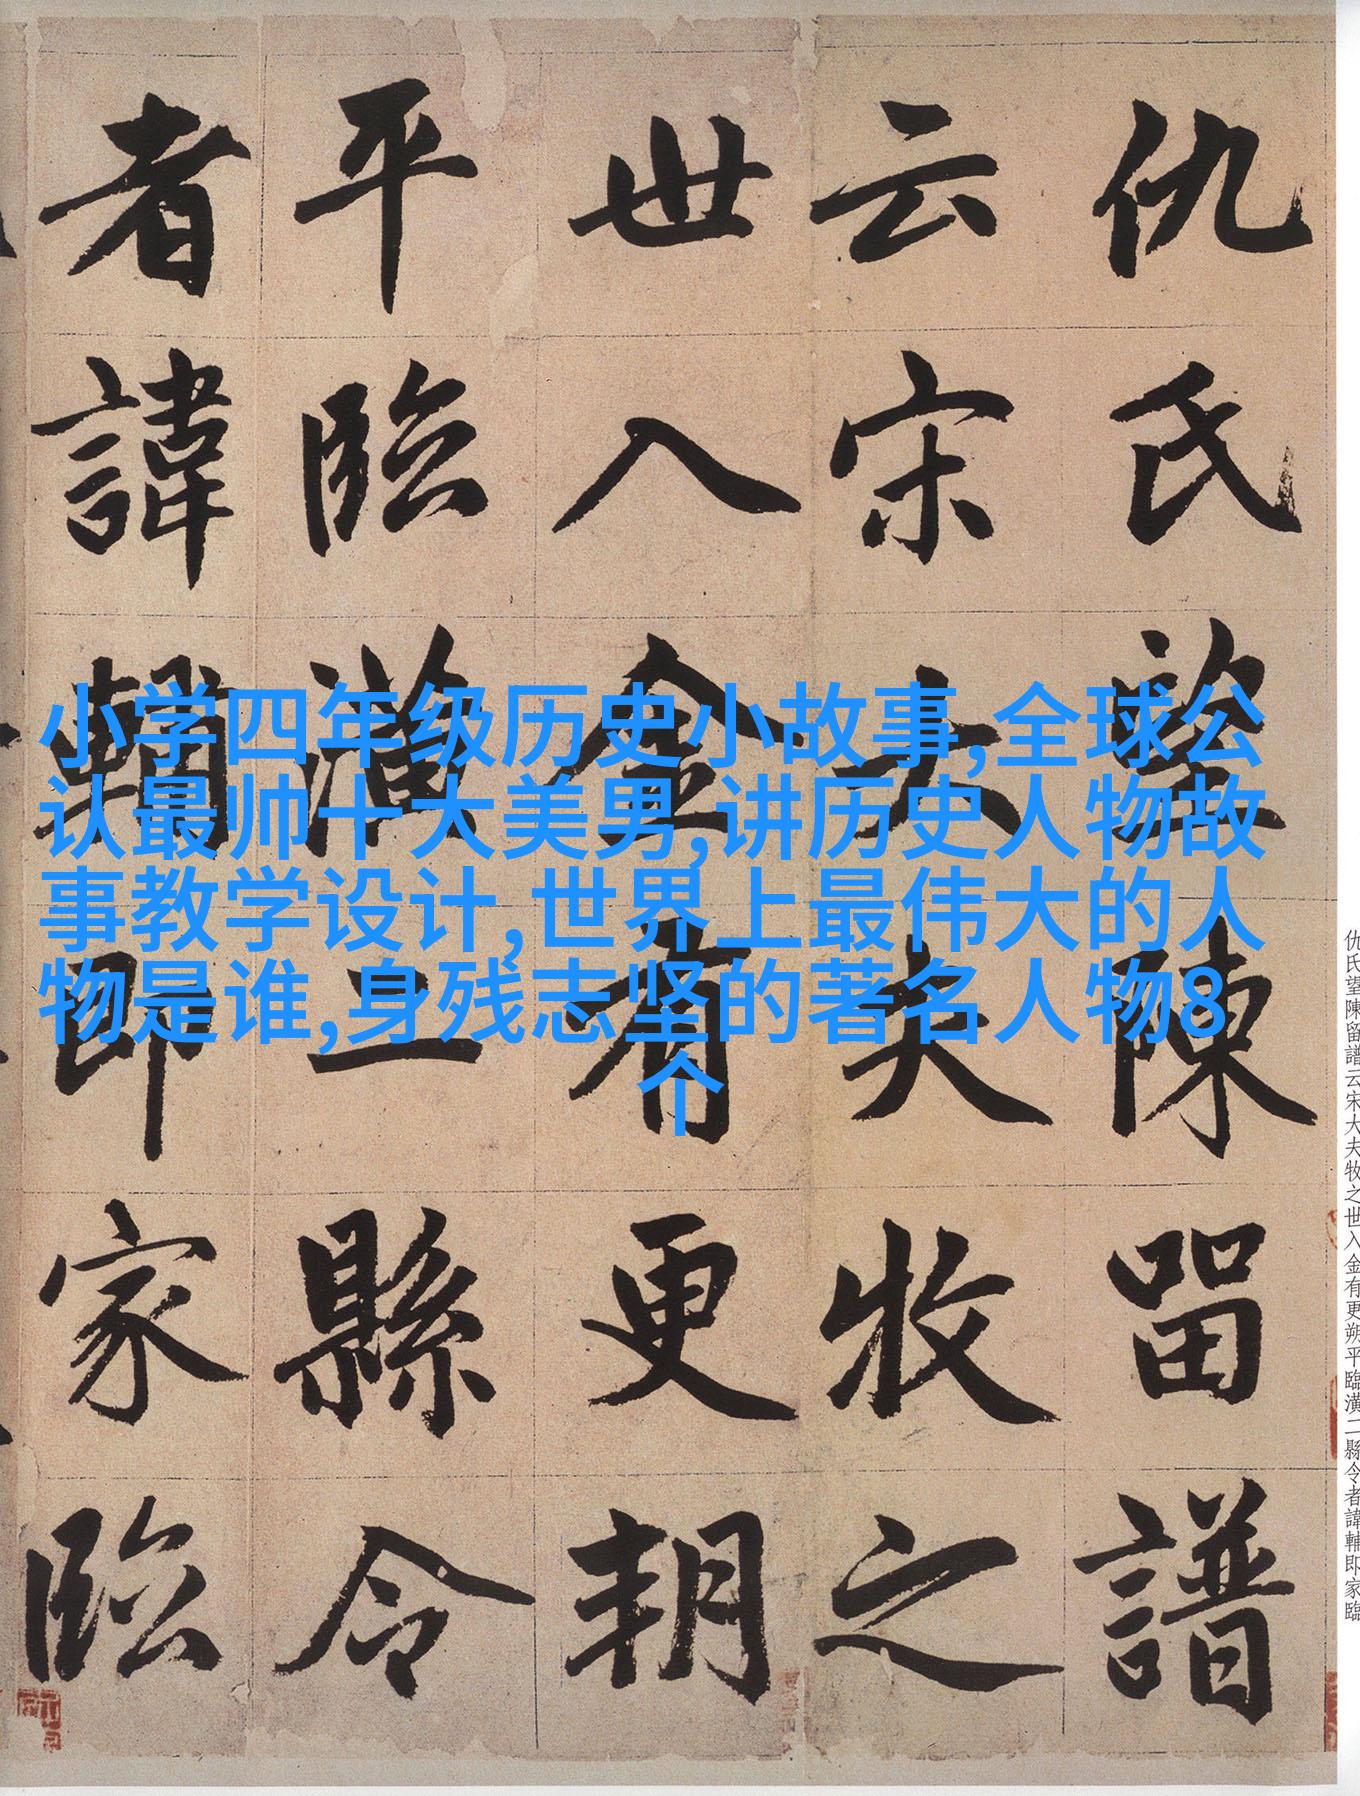 仇氏望陳留譜
云宋大夫牧之
世入金有更朔
平臨潢二縣令
者諱輔即家臨
小学四年级历史小故事,全球公
认最帅十大美男,讲历史人物故
事教学设计,世界上最伟大的人
物是谁,身残志坚的著名人物8
个
仇氏望陳留譜云宋大夫牧之世入金有更朔平臨潢二縣令者諱輔即家臨